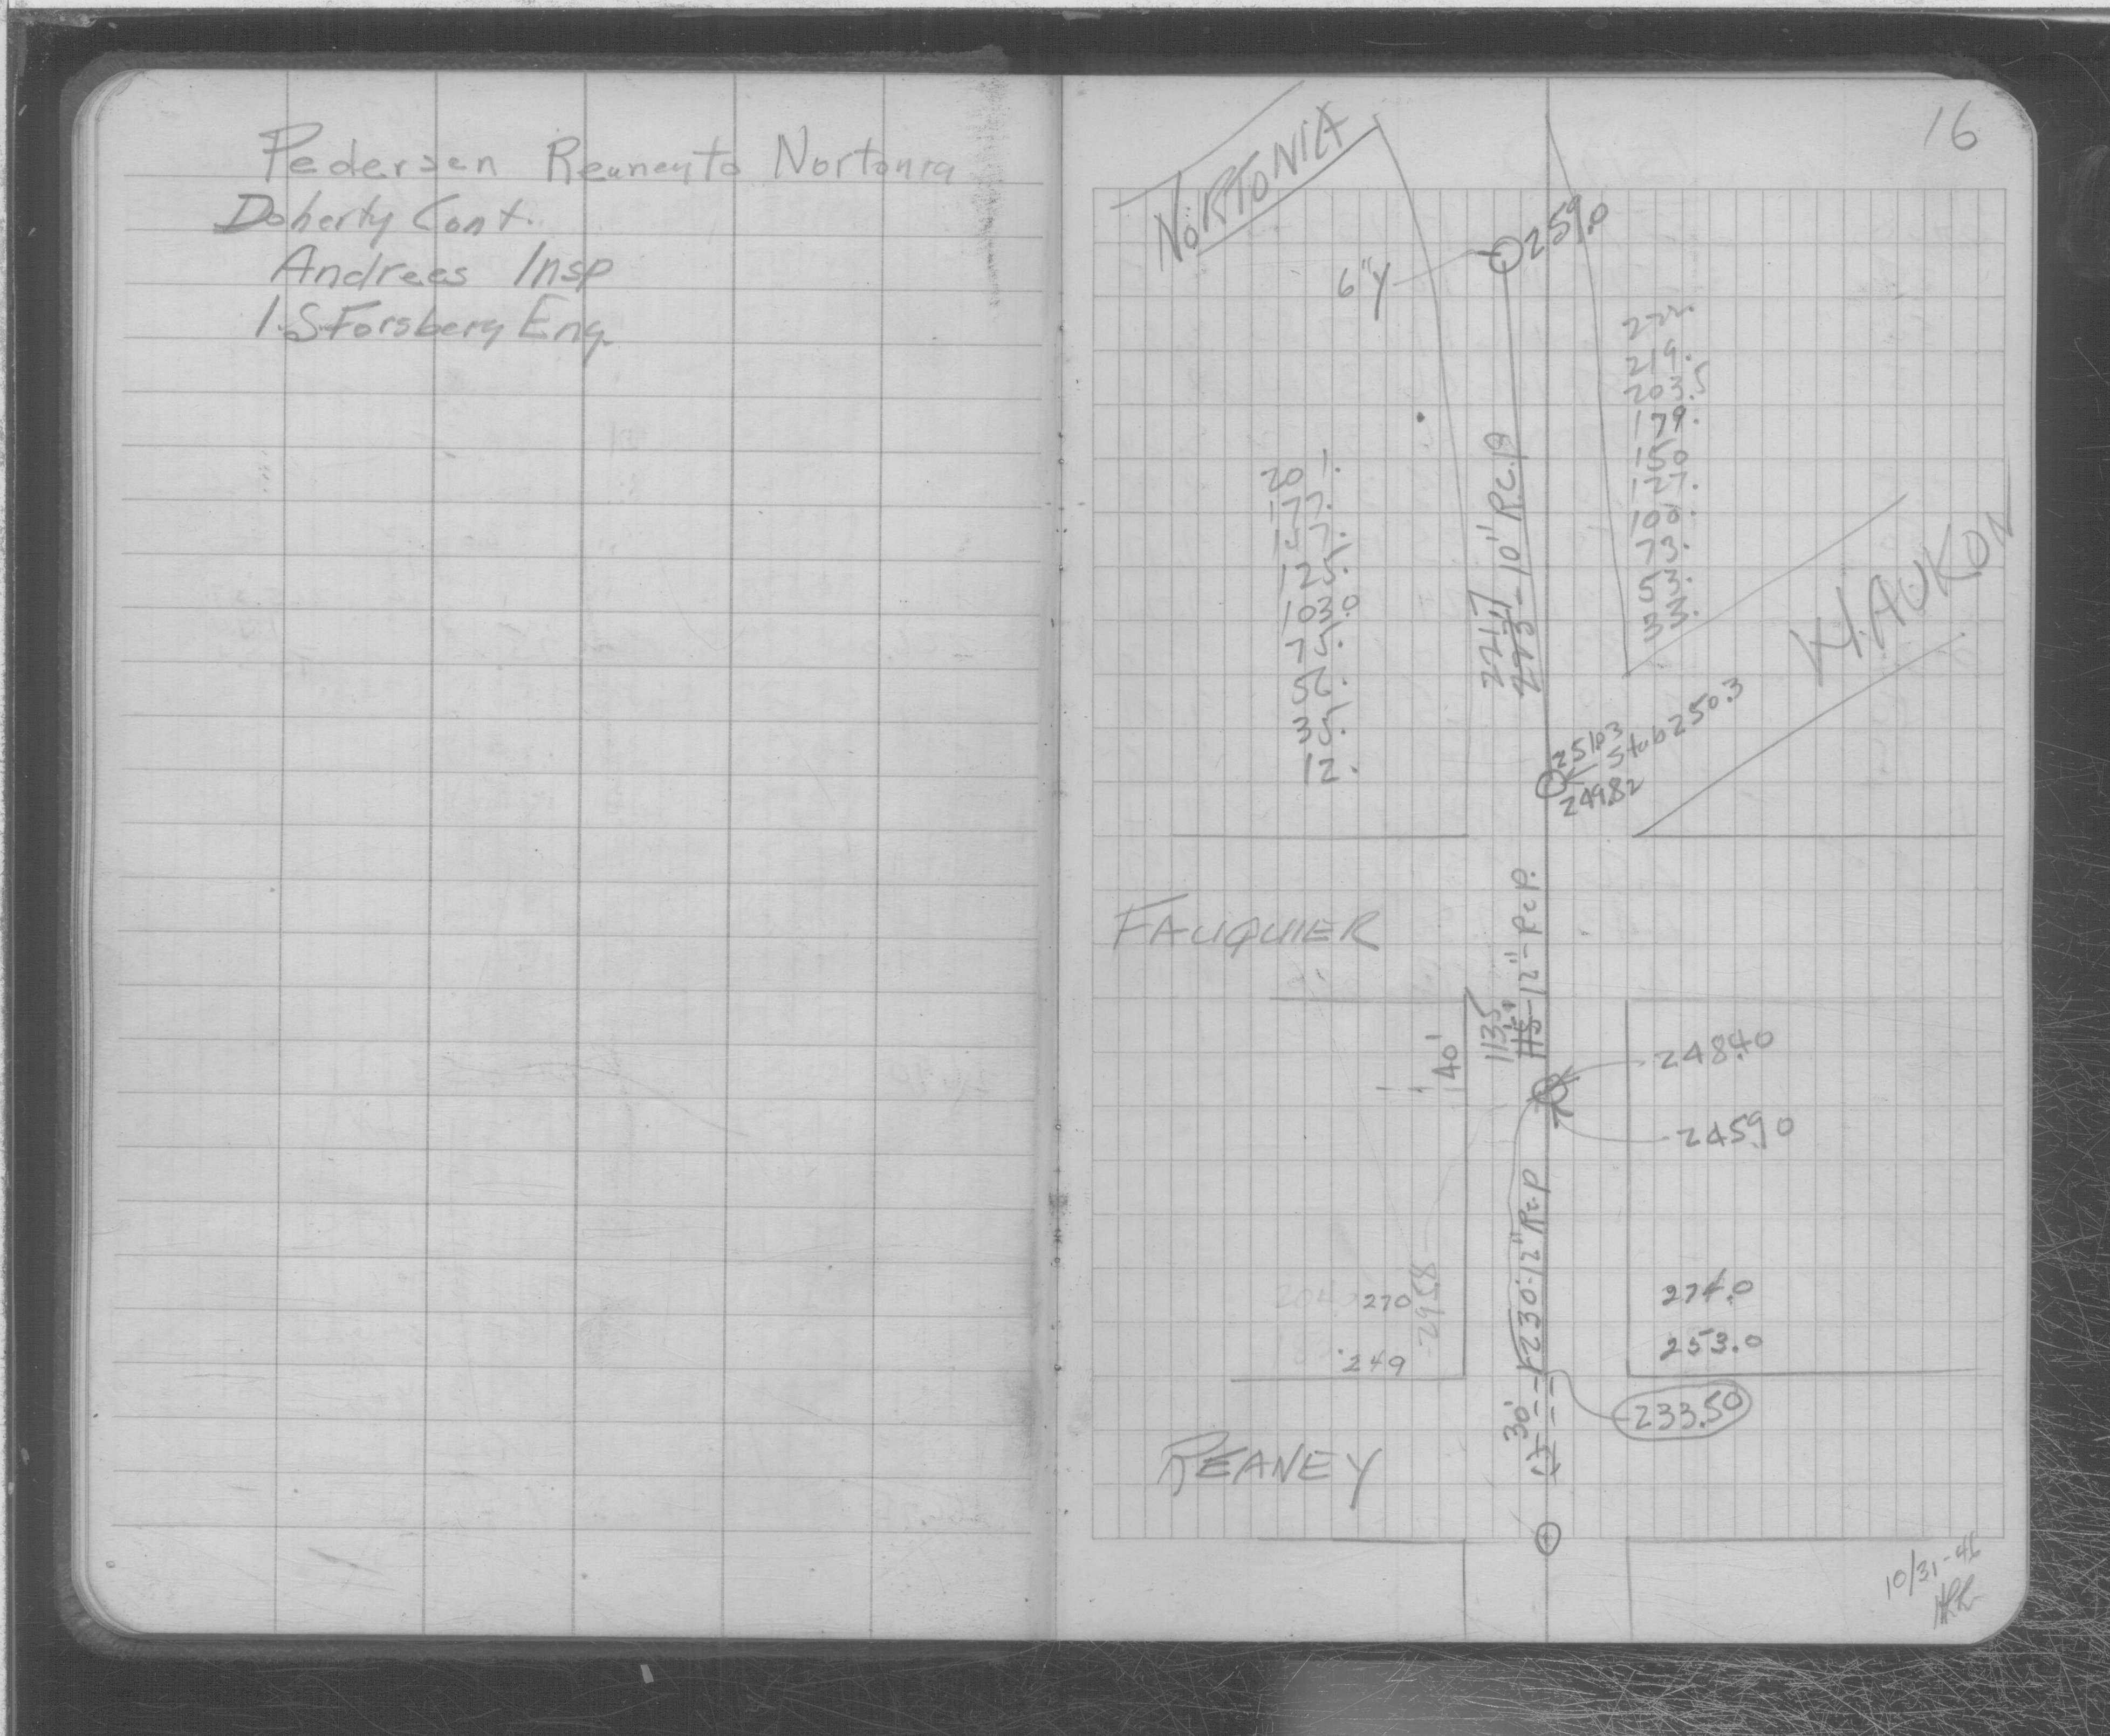 Pedersen Reaney to Nortonia
Doherty Cont.
Andrees Insp
I.S Forsberg Eng.
16
NORTONIA
259.0
6" Y
222.
219.
203.5
179.
150
127.
101.
73.
53.
33.
201.
177.
147.
125.
103.0
75.
56.
35.
12.
221.7
223 - 10" R.C.P
WAUKON
251.03
Stub 250.3
249.82
FAUQUIER
113.5
115 - 12" - R c P.
40'
248.40
245.90
230. 12" R c P
270
295.8
249
274.0
253.0
30'
12
233.50
REANEY
10/31-46